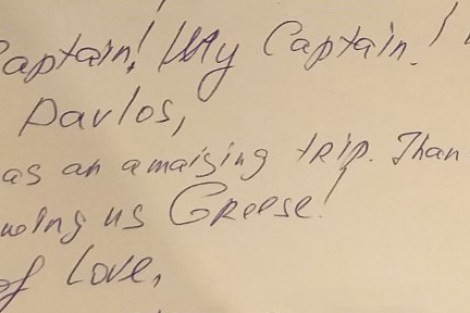 aptain! My Captain!
Pavlos,
as an amaising trip. Than
wing us Greese!
of Love,